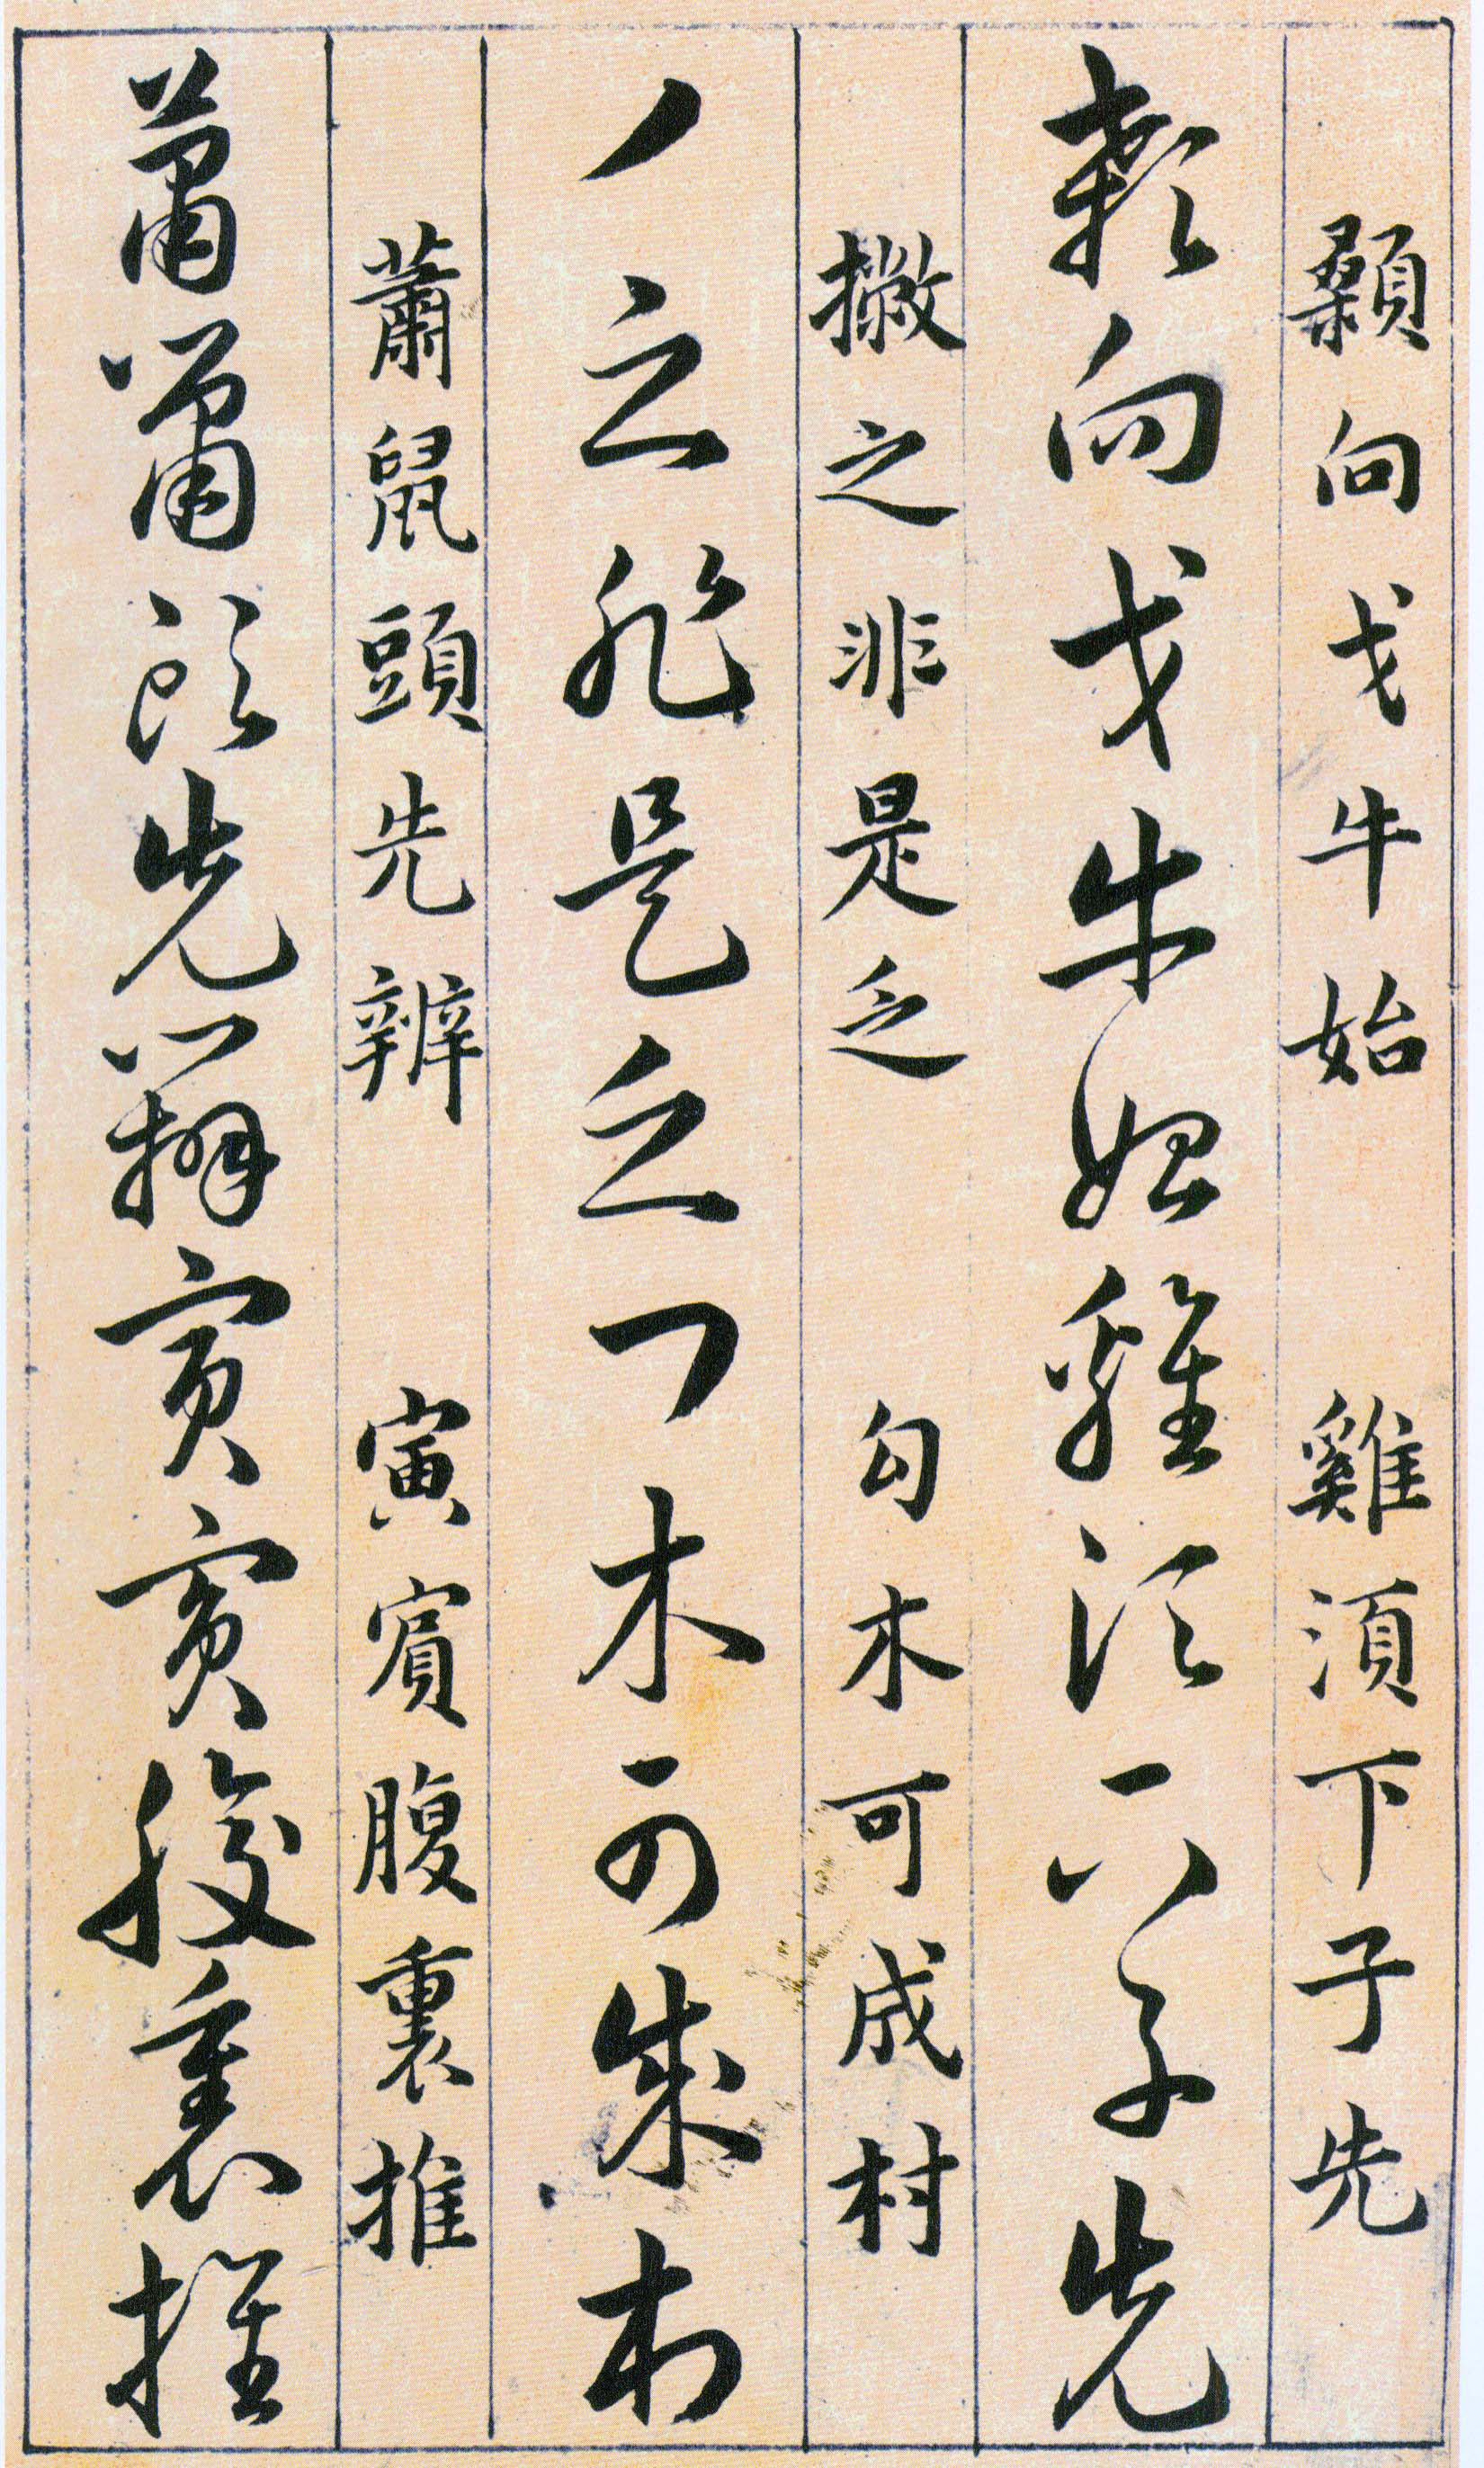 顙向戈牛始　雞須下子先
顙向戈牛始雞須下子先
撇之非是乏　勾木可成村
丿之非是乏㇆木可成村
蕭鼠頭先辨　寅賓腹裏推
蕭鼠頭先辨寅賓腹裏推